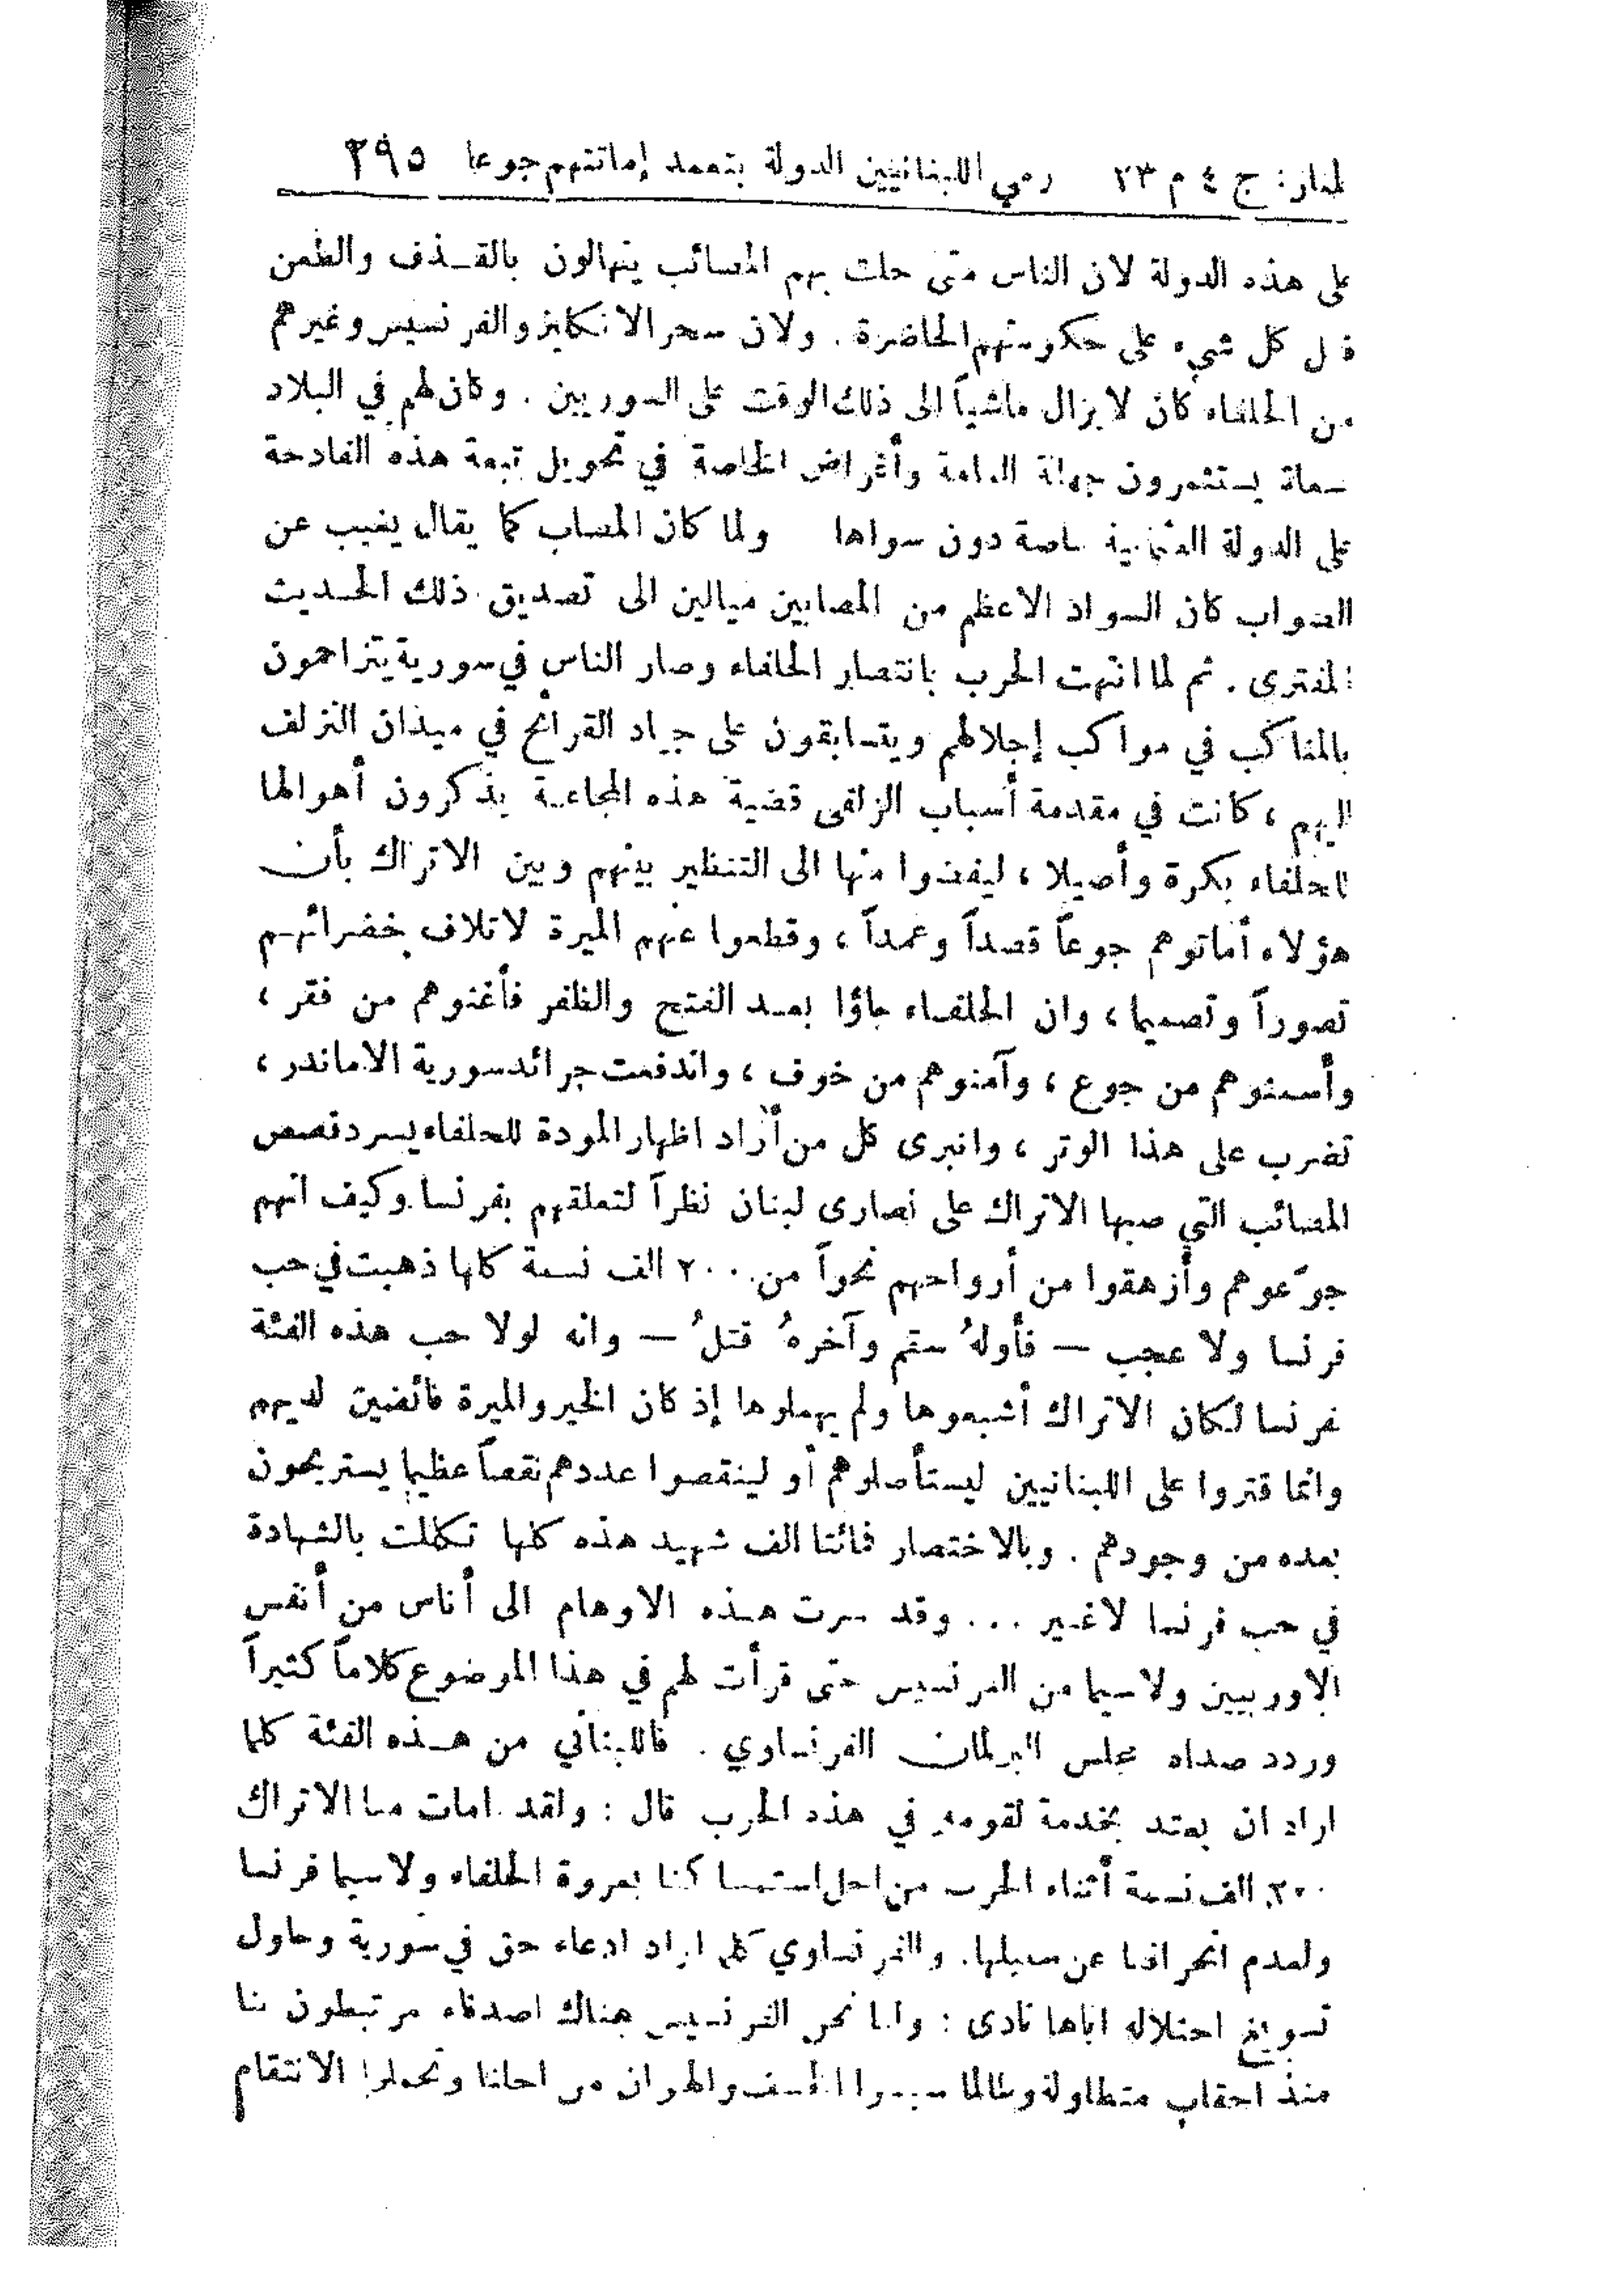 المنار: ج ٤ م ٢٣ رمي اللبنانيين الدولة بتعمد إماتتهم جوعا ٢٩٥
على هذه الدولة لان الناس متى حلت بهم المصائب ينهالون بالقذف والطعن
قبل كل شيء على حكومتهم الحاضرة . ولان سحر الانكليز والفرنسيس وغيرهم
من الحلفاء كان لا يزال ماشياً الى ذلك الوقت على السوريين . وكان لهم في البلاد
سعاة يستثمرون جهالة العامة وأغراض الخاصة في تحويل تبعة هذه الفادحة
على الدولة العثمانية خاصة دون سواها ولما كان المصاب كما يقال يغيب عن
الصواب كان السواد الاعظم من المصابين ميالين الى تصديق ذلك الحديث
المفترى . ثم لما انتهت الحرب بانتصار الحلفاء وصار الناس في سورية يتزاحمون
بالمناكب في مواكب إجلالهم ويتسابقون على جياد القرائح في ميدان التزلف
اليهم ، كانت في مقدمة أسباب الزلفى قضية هذه المجاعة يذكرون أهوالها
للحلفاء بكرة وأصيلا ، ليفضوا منها الى التنظير بينهم وبين الاتراك بأن
هؤلاء أماتوهم جوعاً قصداً وعمداً ، وقطعوا عنهم الميرة لاتلاف خضرائهم
تصوراً وتصميما ، وان الحلفاء جاؤا بعد الفتح والظفر فأغنوهم من فقر ،
وأسمنوهم من جوع ، وآمنوهم من خوف ، واندفعت جرائد سورية الا ماندر ،
تضرب على هذا الوتر ، وانبرى كل من أراد اظهار المودة للحلفاء يسرد قصص
المصائب التي صبها الاتراك على نصارى لبنان نظراً لتعلقهم بفرنسا وكيف انهم
جوّعوهم وأزهقوا من أرواحهم نحواً من ٢٠٠ الف نسمة كلها ذهبت في حب
فرنسا ولا عجب — فأولهُ سقم وآخرهُ قتلُ — وانه لولا حب هذه الفئة
لفرنسا لكان الاتراك أشبعوها ولم يهملوها إذ كان الخير والميرة فائضين لديهم
وانما قتروا على اللبنانيين ليستأصلوهم أو لينقصوا عددهم نقصاً عظيما يستريحون
بعده من وجودهم . وبالاختصار فمائتا الف شهيد هذه كلها تكللت بالشهادة
في حب فرنسا لاغير ... وقد سرت هذه الاوهام الى أناس من أنفس
الاوربيين ولاسيما من الفرنسيس حتى قرأت لهم في هذا الموضوع كلاماً كثيراً
وردد صداه مجلس البرلمان الفرنساوي . فاللبناني من هذه الفئة كلما
اراد ان يعتد بخدمة لقومه في هذه الحرب قال : ولقد امات منا الاتراك
٢٠٠ الف نسمة أثناء الحرب من اجل استمساكنا بعروة الحلفاء ولاسيما فرنسا
ولعدم انحرافنا عن سبيلها. والفرنساوي كلما اراد ادعاء حق في سورية وحاول
تسويغ احتلاله اياها نادى : وانا نحن الفرنسيس هناك اصدقاء مرتبطون بنا
منذ احقاب متطاولة وطالما الخسف والهوان من اجلنا وتحملوا الانتقام